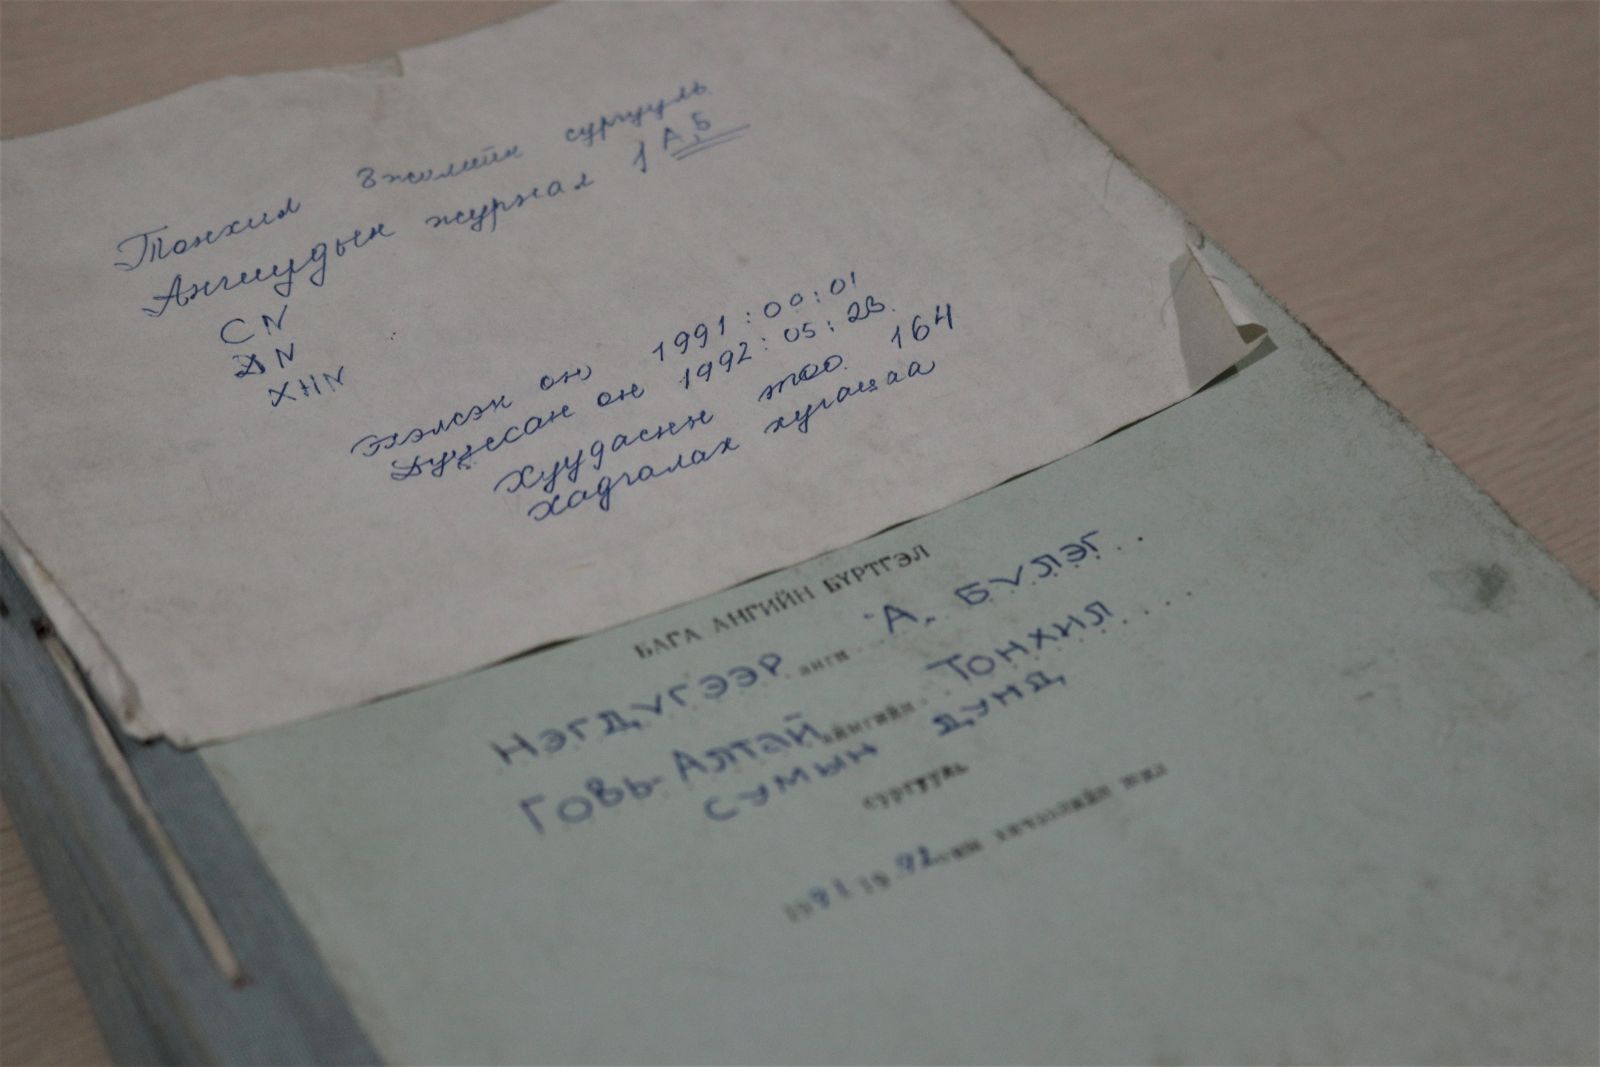 Тонхил 8 жилийн сургууль
Ангиудын журнал 1 А,Б
СN
ДN
ХНN
Эхэлсэн он 1991:00:01
Дууссан он 1992:05:23
Хуудасны тоо 164
Хадгалах хугацаа
БАГА АНГИЙН БҮРТГЭЛ
НЭГДVГЭЭР анги А. БVЛЭГ
ГОВЬ-АЛТАЙ аймгийн ТОНХИЛ
СУМЫН ДУНД
сургууль
1991 1992 оны хичээлийн жил